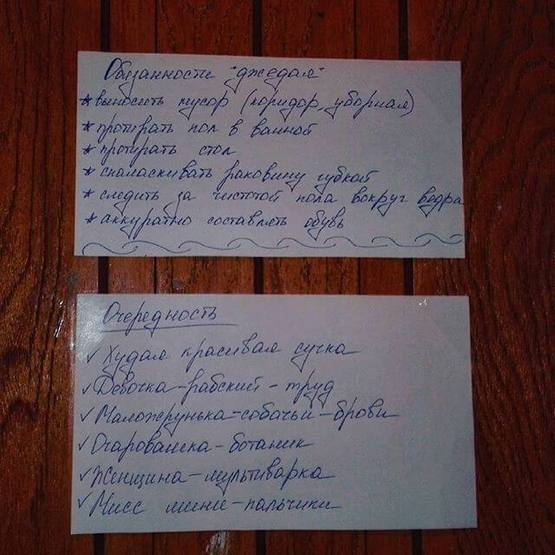 Обязанности "джедая"
* выносить мусор (коридор, уборная)
* протирать пол в ванной
* протирать стол
* споласкивать раковину губкой
* следить за чистотой пола вокруг ведра
* аккуратно составлять обувь
Очередность
✓ Худая красивая сучка
✓ Девочка-рабский-труд
✓ Маложрунька-собачьи-брови
✓ Очаровашка-ботаник
✓ Женщина-мультиварка
✓ Мисс мини-пальчики